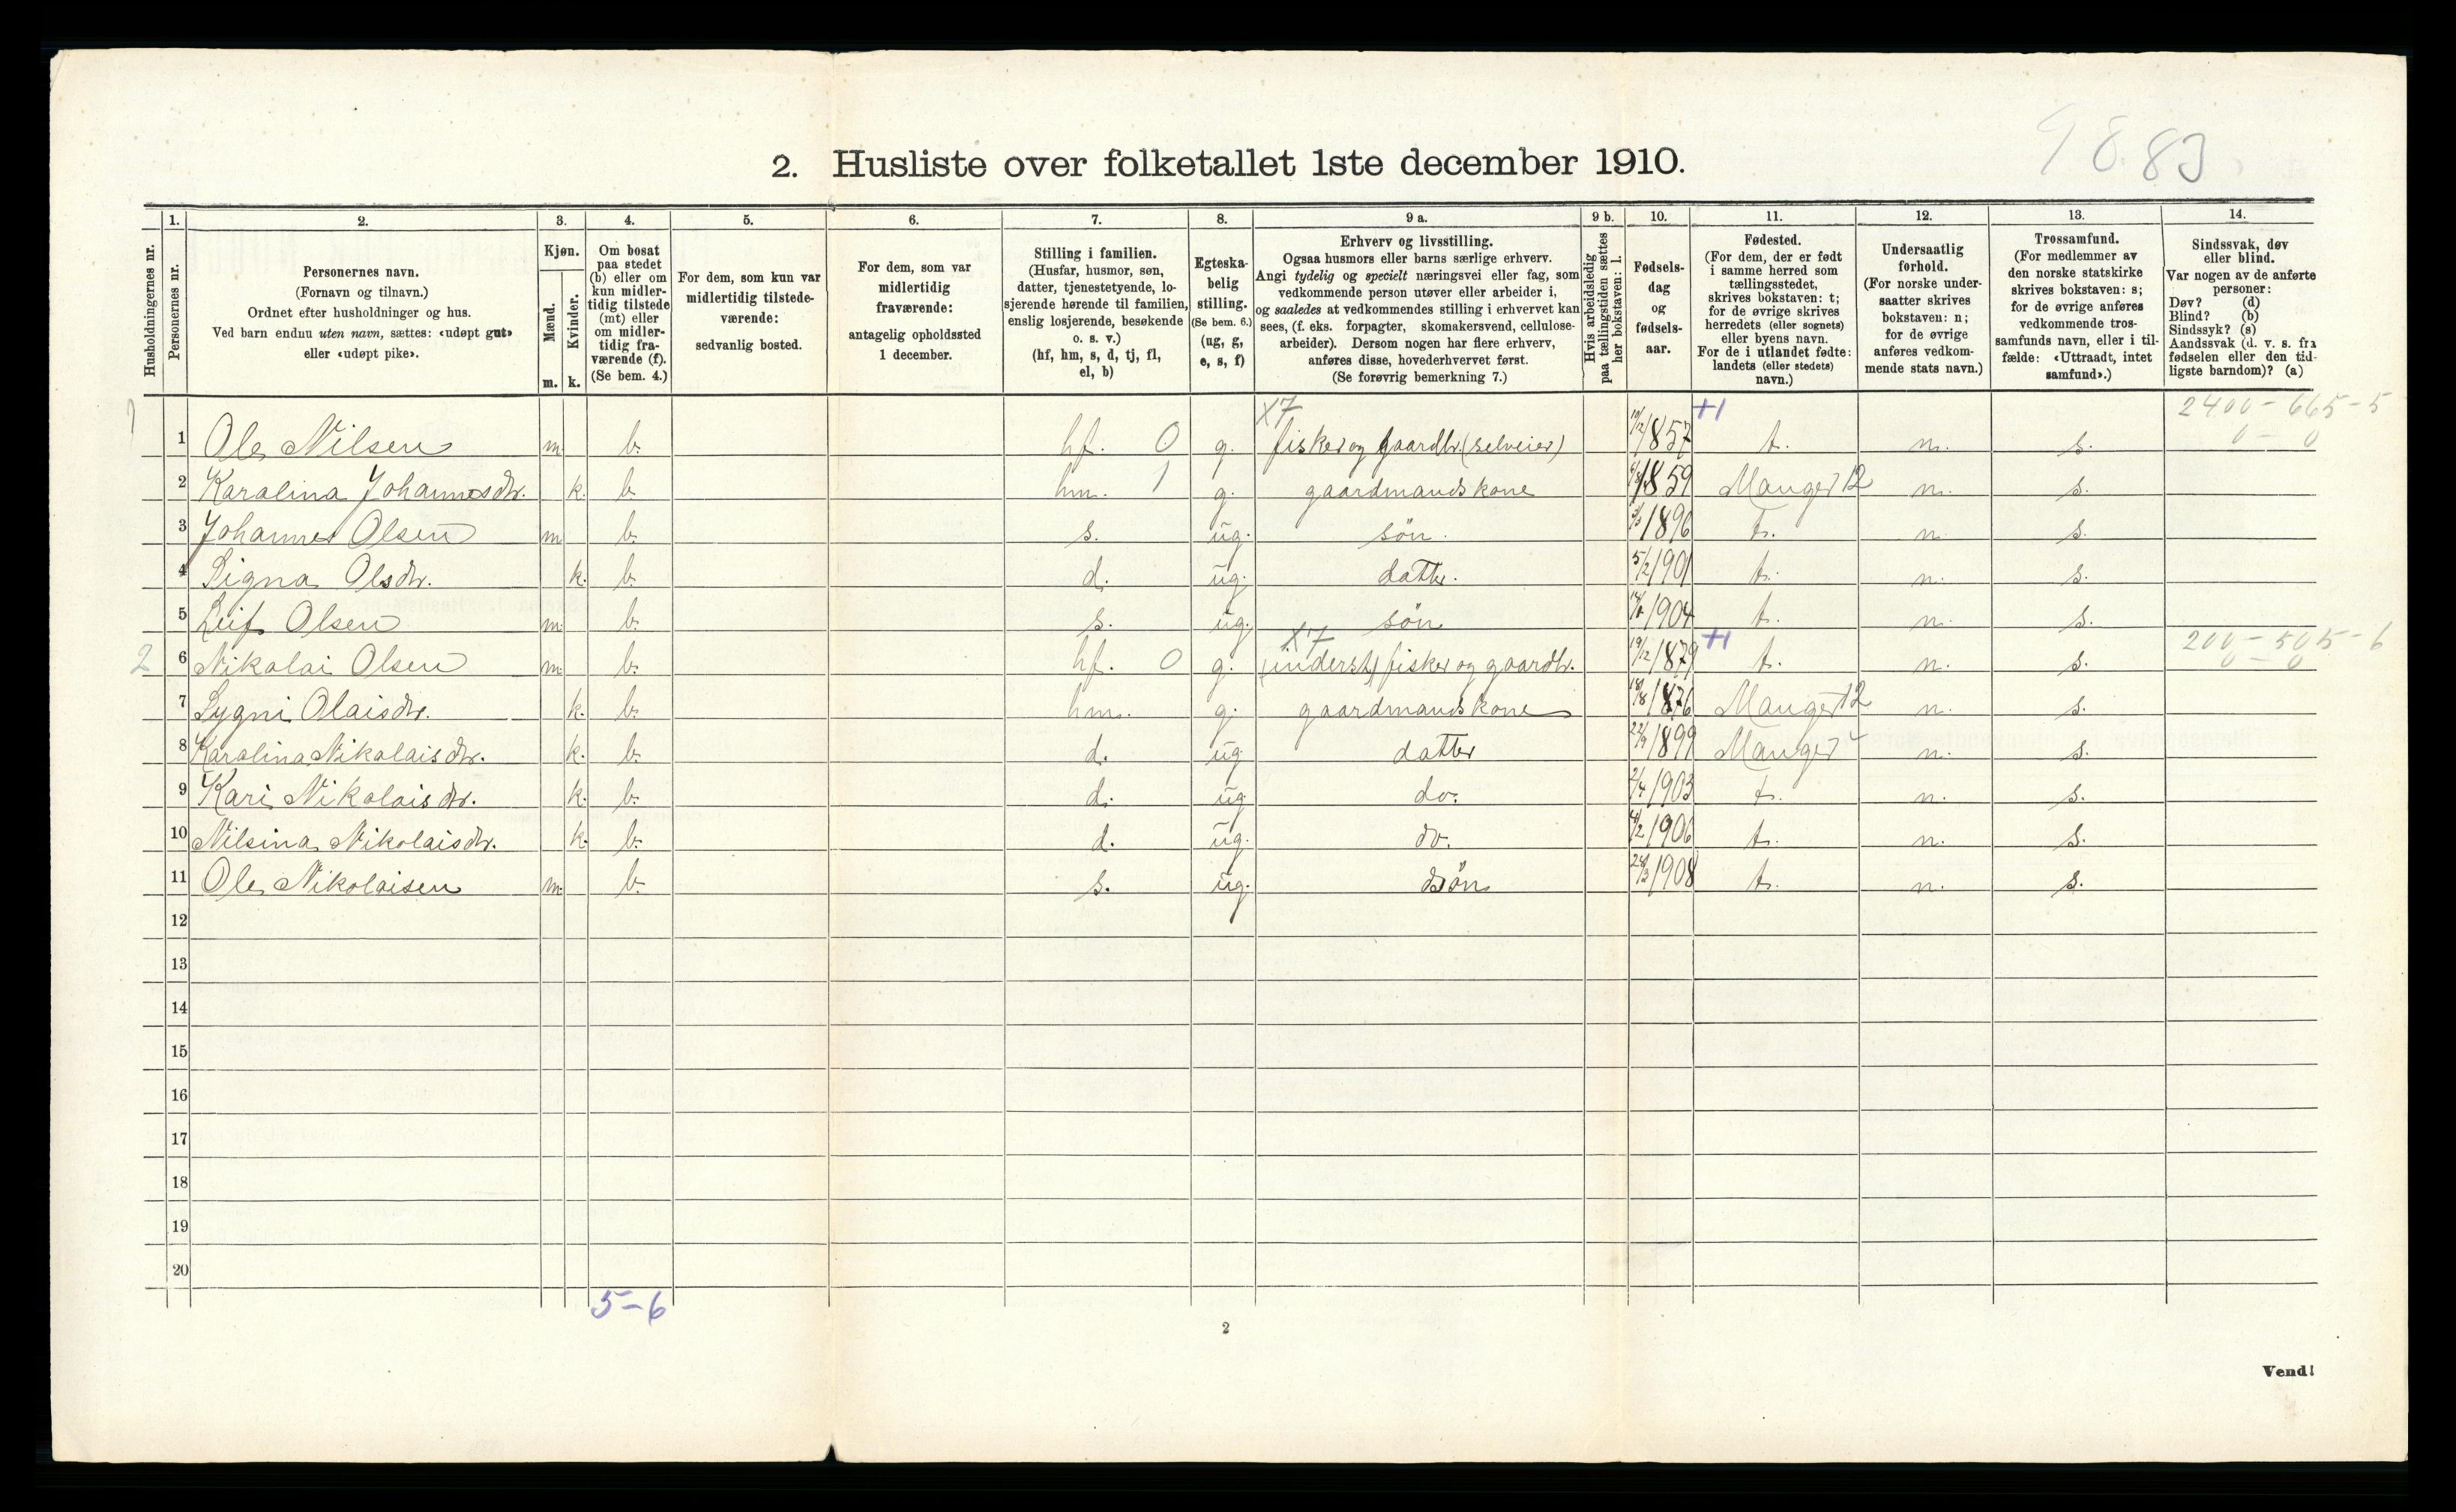 98.83
2. Husliste over folketallet 1ste december 1910.
1. 2. 3. 4. 5. 6. 7. 8. 9 a. 9 b. 10. 11. 12. 13. 14.
Husholdningernes nr.
Personernes nr.
Personernes navn.
(Fornavn og tilnavn.)
Ordnet efter husholdninger og hus.
Ved barn endnu uten navn, sættes: «udøpt gut»
eller «udøpt pike».
Kjøn.
Mænd.
Kvinder.
m. k.
Om bosat
paa stedet
(b) eller om
kun midler-
tidig tilstede
(mt) eller
om midler-
tidig fra-
værende (f).
(Se bem. 4.)
For dem, som kun var
midlertidig tilstede-
værende:
sedvanlig bosted.
For dem, som var
midlertidig
fraværende:
antagelig opholdssted
1 december.
Stilling i familien.
(Husfar, husmor, søn,
datter, tjenestetyende, lo-
sjerende hørende til familien,
enslig losjerende, besøkende
o. s. v.)
(hf, hm, s, d, tj, fl,
el, b)
Egteska-
belig
stilling.
(Se bem. 6.)
(ug, g,
e, s, f)
Erhverv og livsstilling.
Ogsaa husmors eller barns særlige erhverv.
Angi tydelig og specielt næringsvei eller fag, som
vedkommende person utøver eller arbeider i,
og saaledes at vedkommendes stilling i erhvervet kan
sees, (f. eks. forpagter, skomakersvend, cellulose-
arbeider). Dersom nogen har flere erhverv,
anføres disse, hovederhvervet først.
(Se forøvrig bemerkning 7.)
Hvis arbeidsledig
paa tællingstiden sættes
her bokstaven: l.
Fødsels-
dag
og
fødsels-
aar.
Fødested.
(For dem, der er født
i samme herred som
tællingsstedet,
skrives bokstaven: t;
for de øvrige skrives
herredets (eller sognets)
eller byens navn.
For de i utlandet fødte:
landets (eller stedets)
navn.)
Undersaatlig
forhold.
(For norske under-
saatter skrives
bokstaven: n;
for de øvrige
anføres vedkom-
mende stats navn.)
Trossamfund.
(For medlemmer av
den norske statskirke
skrives bokstaven: s;
for de øvrige anføres
vedkommende tros-
samfunds navn, eller i til-
fælde: «Uttraadt, intet
samfund».)
Sindssvak, døv
eller blind.
Var nogen av de anførte
personer:
Døv? (d)
Blind? (b)
Sindssyk? (s)
Aandssvak (d. v. s. fra
fødselen eller den tid-
ligste barndom)? (a)
X7 +1 2400-665-5
1 1 Ole Nilsen m. b. hf. 0 g. fisker og gaardbr. (selveier) 10/12 1857 t. n. s. 0-0
2 Karalina Johannesdtr. k. b. hm. 1 g. gaardmandskone 1859 Manger 12 n. s.
3 Johannes Olsen m. b. s. ug. søn. 1896 t. n. s.
4 Signa Olsdtr. k. b. d. ug. datter. 5/2 1901 t. n. s.
5 Leif Olsen m. b. s. ug. søn 1904 t. n. s.
X7 +1 200-505-6
2 6 Nikolai Olsen m. b. hf. 0 g. (inderst) fisker og gaardbr. 19/12 1879 t. n. s. 0-0
7 Sygni Olaisdtr. k. b. hm. g. gaardmandskone 18/8 1876 Manger 12 n. s.
8 Karalina Nikolaisdtr. k. b. d. ug datter 22/9 1899 Manger n. s.
9 Kari Nikolaisdtr. k. b. d. ug do. 2/4 1903 t. n. s.
10 Nilsina Nikolaisdtr. k. b. d. ug. do. 4/2 1906 t. n. s.
11 Ole Nikolaisen m. b. s. ug. søn 24/3 1908 t. n. s.
12
13
14
15
16
17
18
19
20
5-6
2
Vend!